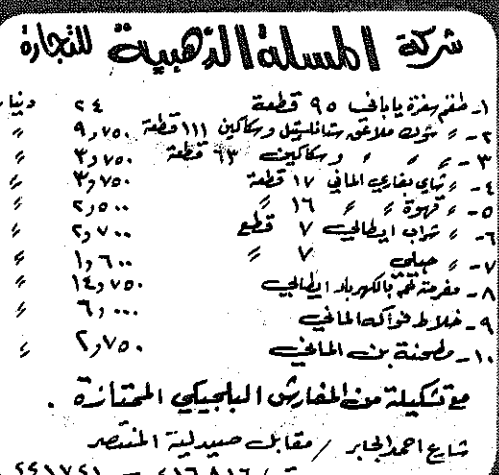 شركة المسلة الذهبية للتجارة
١- طقم سفرة ياباني ٩٥ قطعة ٢٤ دينار
٢- 〃 شوك ملاعق ستانلستيل وسكاكين ١١١ قطعة ٩,٧٥٠ 〃
٣- 〃 〃 〃 وسكاكين ٦٣ قطعة ٣,٧٥٠ 〃
٤- 〃 شاي بفاري الماني ١٧ قطعة ٣,٧٥٠ 〃
٥- 〃 قهوة 〃 〃 ١٦ 〃 ٢,٥٠٠ 〃
٦- 〃 شراب ايطالي ٧ قطع ٢,٧٠٠ 〃
٧- 〃 جيلي ٧ 〃 ١,٦٠٠ 〃
٨- مفرمة لحم بالكهرباء ايطالي ١٤,٧٥٠ 〃
٩- خلاط فواكه الماني ٦,٠٠٠ 〃
١٠- مطحنة بن الماني ٢,٧٥٠ 〃
مع تشكيلة من المفارش البلجيكي الممتازة .
شارع احمد الجابر / مقابل صيدلية المنتصر